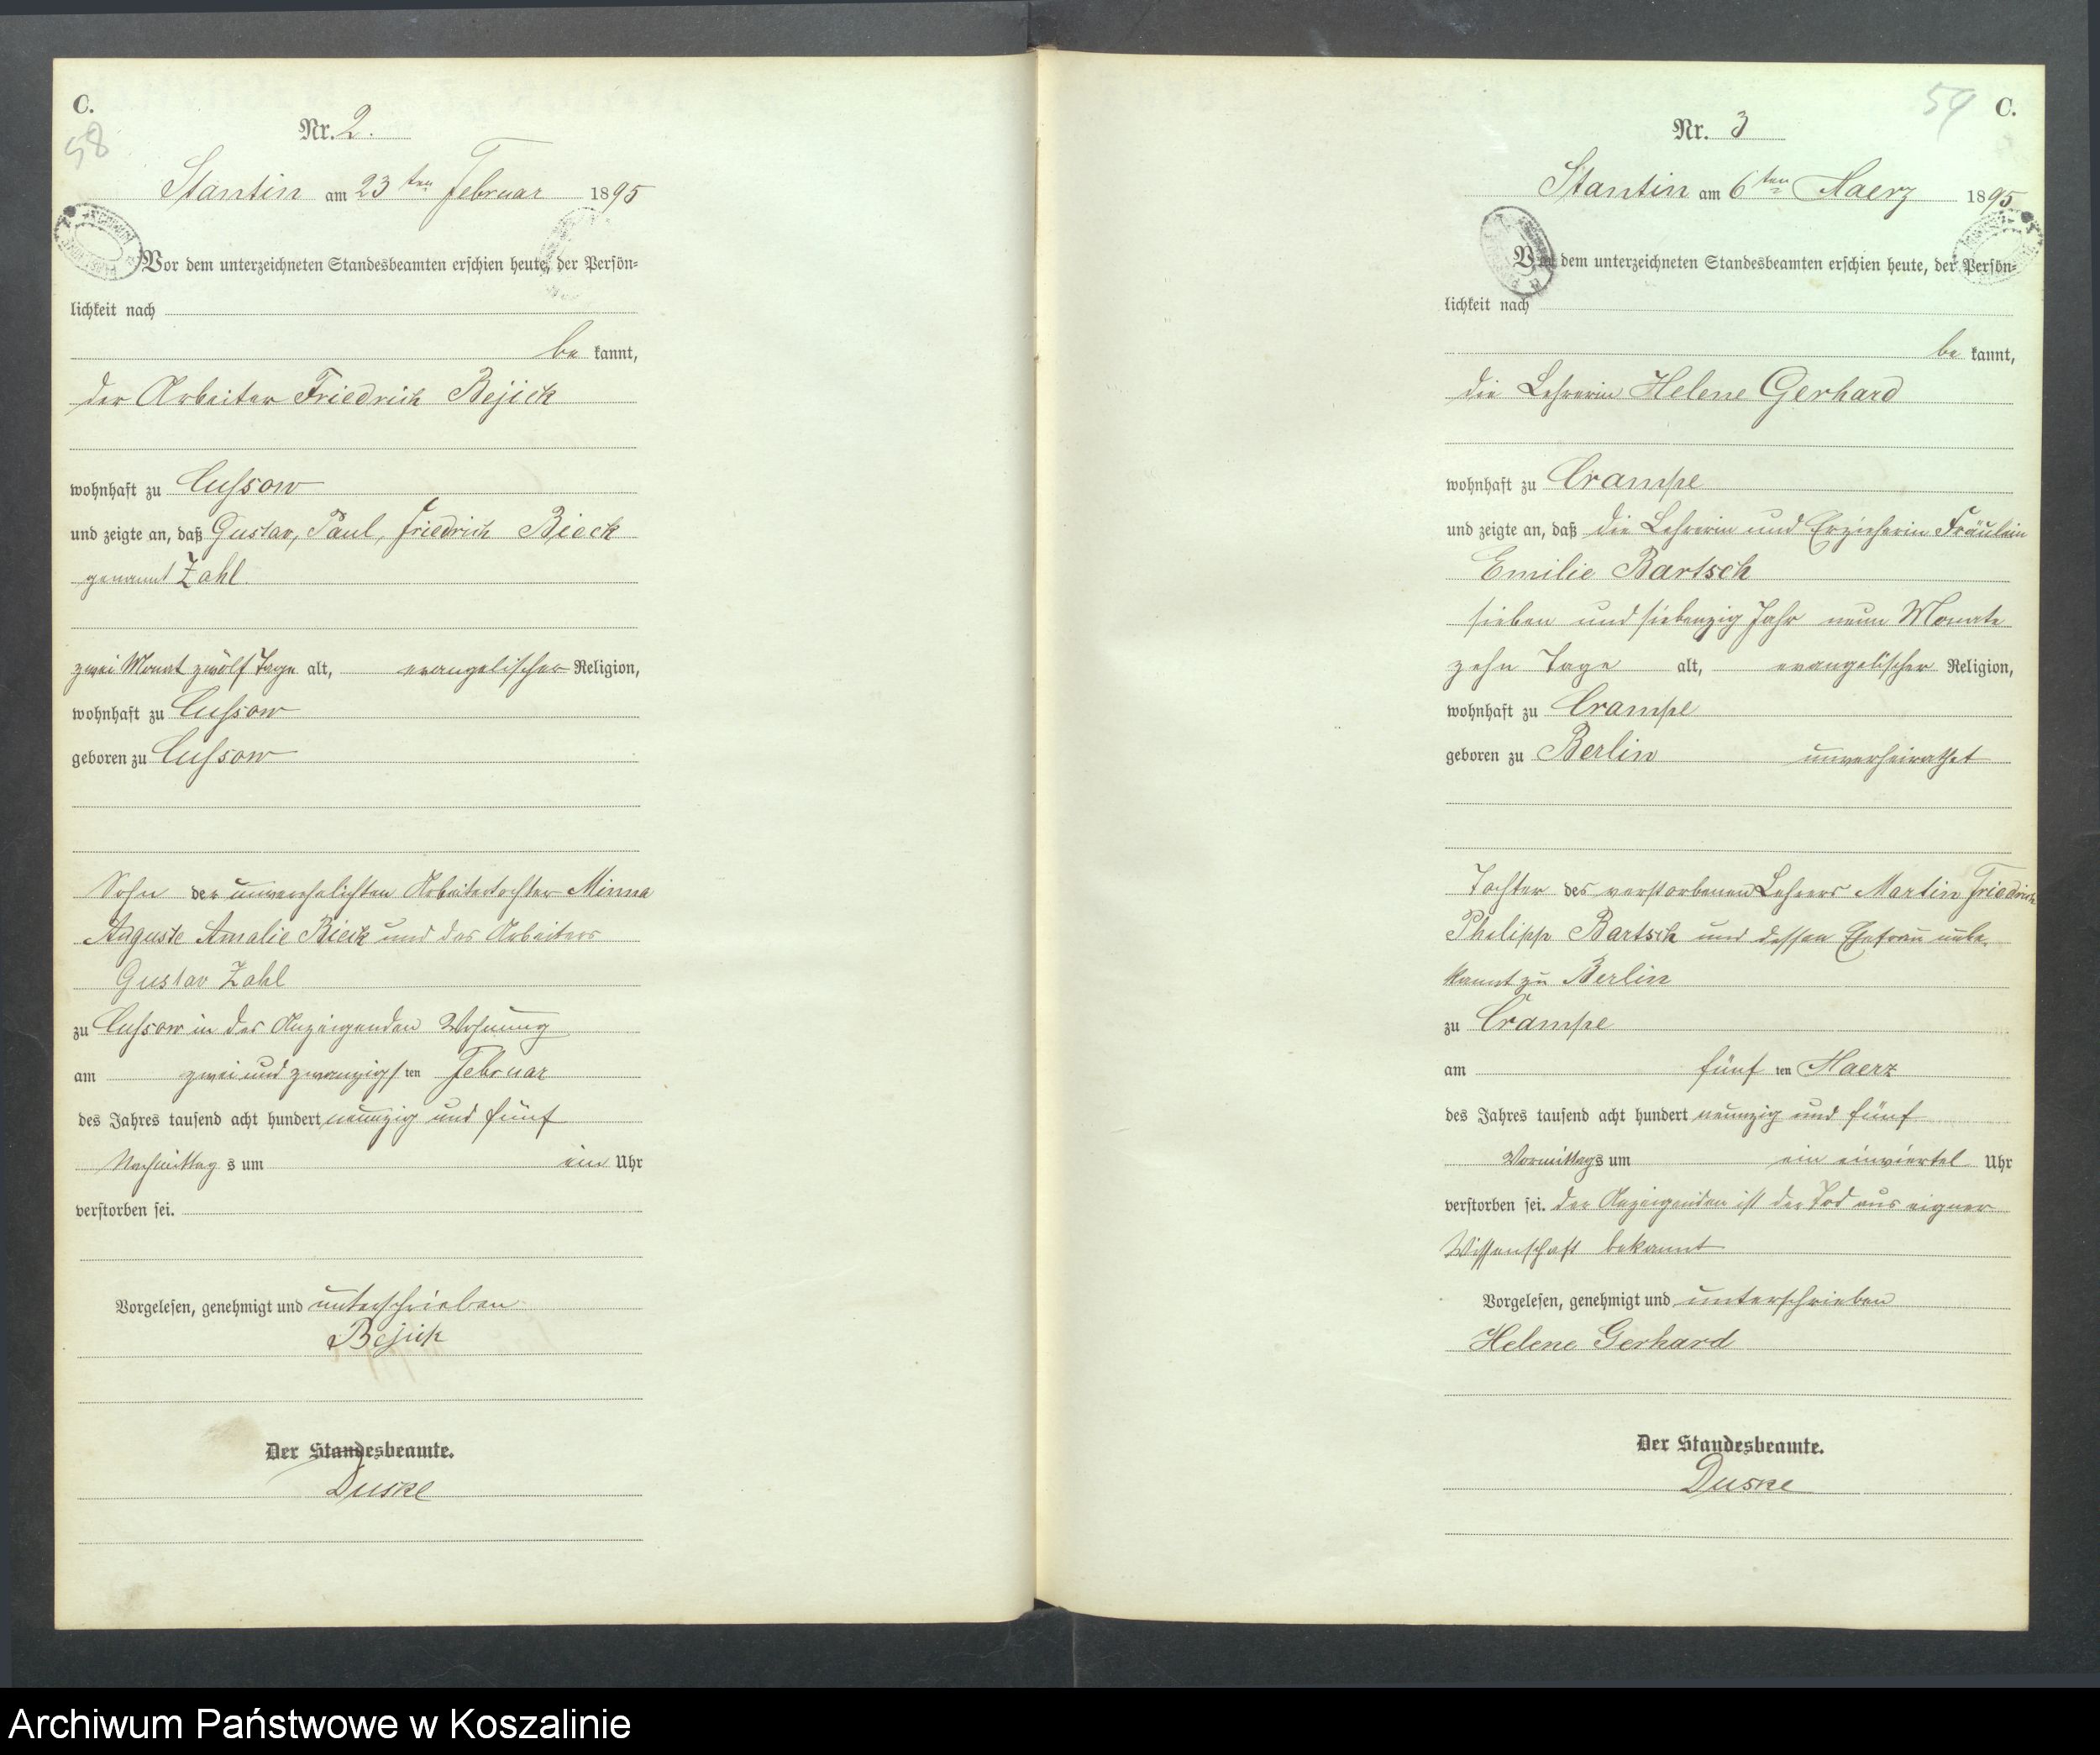 C.
58
Nr. 2.
Stantin am 23 ten Februar 1895
Vor dem unterzeichneten Standesbeamten erschien heute, der Persön-
lichkeit nach
be kannt,
der Arbeiter Friedrich Bejick
wohnhaft zu Cussow
und zeigte an, daß Gustav, Paul, Friedrich Bieck
genannt Zahl
zwei Monat zwölf Tage alt, evangelischer Religion,
wohnhaft zu Cussow
geboren zu Cussow
Sohn der unverehelichten Arbeitertochter Minna
Auguste Amalie Bieck und des Arbeiters
Gustav Zahl
zu Cussow in des Anzeigenden Wohnung
am zwei und zwanzigs ten Februar
des Jahres tausend acht hundert neunzig und fünf
Nachmittag s um ein Uhr
verstorben sei.
Vorgelesen, genehmigt und unterschrieben
Bejick
Der Standesbeamte.
Duske
59 C.
Nr. 3
Stantin am 6 ten Maerz 1895
Vor dem unterzeichneten Standesbeamten erschien heute, der Persön-
lichkeit nach
be kannt,
die Lehrerin Helene Gerhard
wohnhaft zu Crampe
und zeigte an, daß die Lehrerin und Erzieherin Fräulein
Emilie Bartsch
sieben und siebenzig Jahr neun Monate
zehn Tage alt, evangelischer Religion,
wohnhaft zu Crampe
geboren zu Berlin unverheirathet
Tochter des verstorbenen Lehrers Martin Friedrich
Philipp Bartsch und dessen Ehefrau unbe-
kannt zu Berlin
zu Crampe
am fünf ten Maerz
des Jahres tausend acht hundert neunzig und fünf
Vormittags um ein einviertel Uhr
verstorben sei. Der Anzeigenden ist der Tod aus eigner
Wissenschaft bekannt
Vorgelesen, genehmigt und unterschrieben
Helene Gerhard
Der Standesbeamte.
Duske
Archiwum Państwowe w Koszalinie